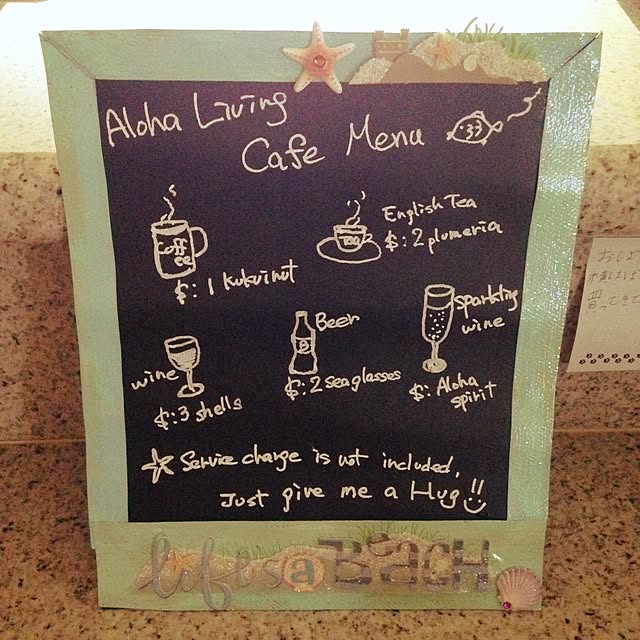 Aloha Living
Cafe Menu
Coff
ee
$: 1 kukuinut
Tea
English Tea
$: 2 plumeria
wine
$: 3 shells
Beer
B
$: 2 seaglasses
sparkling
wine
$: Aloha
spirit
Service charge is not included,
Just give me a Hug!!
life is a BEACH